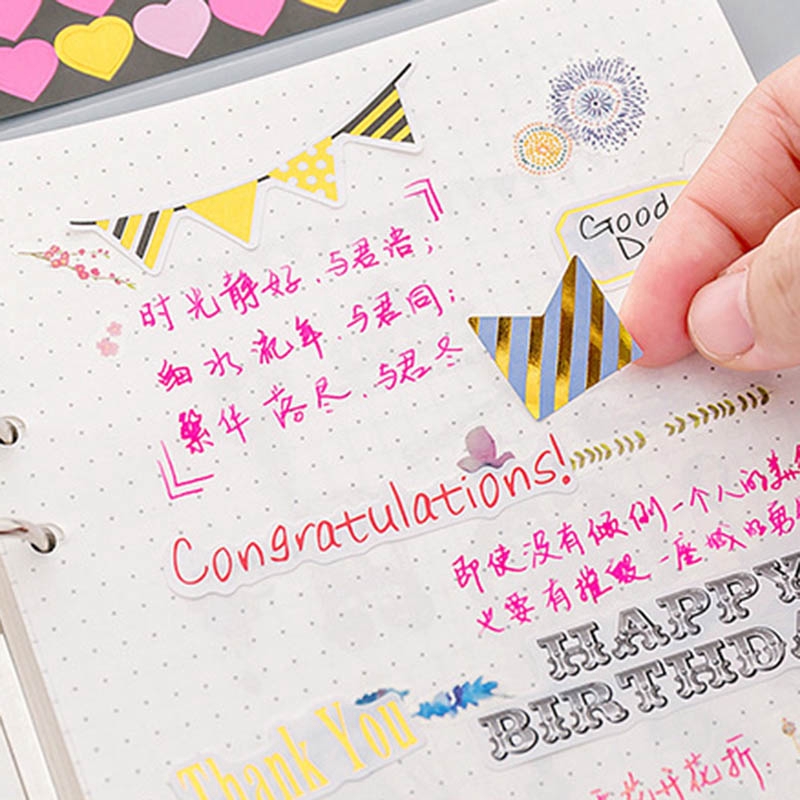 Good
时光静好,与君语;
细水流年,与君同;
繁华落尽,与君
Congratulations!
即使没有倾倒一个人的美
也要有摧毁一座城的勇
HAPPY
BIRTHDA
Thank You
花开花折.